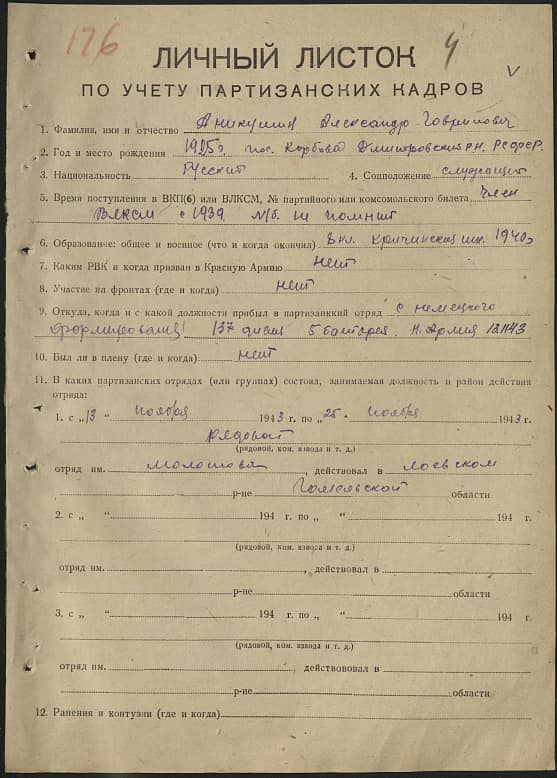 176
4
V
ЛИЧНЫЙ ЛИСТОК
ПО УЧЕТУ ПАРТИЗАНСКИХ КАДРОВ
1. Фамилия, имя и отчество Аникушин Александр Гаврилович
2. Год и место рождения 1925г. пос. Дмитровский р.н. РСФСР.
3. Национальность Русский 4. Соцположение служащий
5. Время поступления в ВКП(б) или ВЛКСМ, № партийного или комсомольского билета член
ВЛКСМ с 1939 м/б. не помнит
6. Образование: общее и военное (что и когда окончил) 8 кл. 1940г
7. Каким РВК и когда призван в Красную Армию нет
8. Участие на фронтах (где и когда) нет
9. Откуда, когда и с какой должности прибыл в партизанский отряд с немецкого
формирования 137 дивиз 5 батарея. Н. Армия
10. Был ли в плену (где и когда) нет
11. В каких партизанских отрядах (или группах) состоял, занимаемая должность и район действия
отряда:
1. с „13 “ ноября 1943 г. по „25 “ ноября 1943 г.
рядовой
(рядовой, ком. взвода и т. д.)
отряд им. Молотова, действовал в Лоевском
р-не Гомельской области
2. с „ “ 194 г. по „ “ 194 г.
(рядовой, ком. взвола и т. д.)
отряд им. , действовал в
р-не области
3. с „ “ 194 г. по „ “ 194 г.
(рядовой, ком. взвода и т. д.)
отряд им. , действововал в
р-не области
12. Ранения и контузии (где и когда)